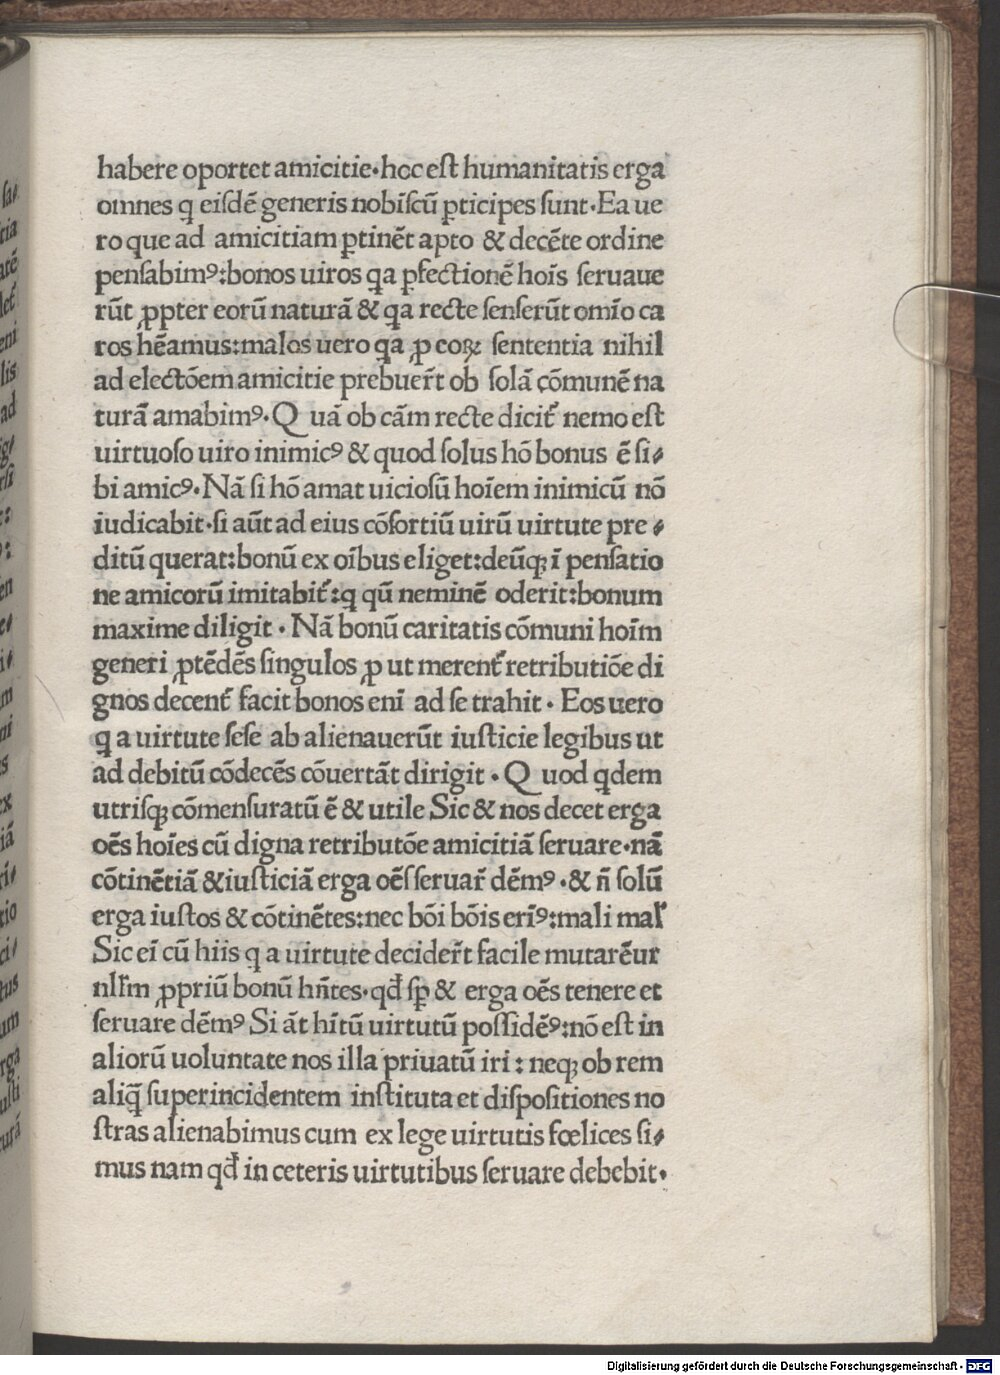 habere oportet amicitie·hoc est humanitatis erga
omnes q̄ eisdē generis nobiscū ꝑticipes sunt·Ea ue
ro que ad amicitiam ꝑtinēt apto & decēte ordine
pensabimꝰ:bonos uiros qa ꝑfectionē hoīs seruaue
rūt ꝓpter eorū naturā & qa recte senserūt omīo ca
ros hēamus:malos uero qa ꝓ eoꝝ sententia nihil
ad electōem amicitie prebuer̄t ob solā cōmunē na
turā amabimꝰ·Q uā ob cām recte dicit᷑ nemo est
uirtuoso uiro inimicꝰ & quod solus hō bonus ē si⸗
bi amicꝰ·Nā si hō amat uiciosū hoīem inimicū nō
iudicabit·si aūt ad eius cōsortiū uirū uirtute pre⸗
ditū querat:bonū ex oībus eliget:deūqꝫ ī pensatio
ne amicorū imitabit᷑:q̄ qū neminē oderit:bonum
maxime diligit · Nā bonū caritatis cōmuni hoīm
generi ꝓtēdēs singulos ꝓ ut merent᷑ retributiōe di
gnos decent᷑ facit bonos enī ad se trahit · Eos uero
q̄ a uirtute sese ab alienauerūt iusticie legibus ut
ad debitū cōdecēs cōuertāt dirigit · Q uod qdem
utrisqꝫ cōmensuratū ē & utile Sic & nos decet erga
oēs hoīes cū digna retributōe amicitiā seruare·nā
cōtinētiā &iusticiā erga oēs seruar̄ dēmꝰ·& n̄ solū
erga iustos & cōtinētes:nec bōi bōis erīꝰ:mali mal᷑
Sic eī cū hiis q̄ a uirtute decider̄t facile mutarēur
nll᷑m ꝓpriū bonū hn̄tes·qđ sꝑ & erga oēs tenere et
seruare dēmꝰ Si āt hītū uirtutū possidēꝰ:nō est in
aliorū uoluntate nos illa priuatū iri : neqꝫ ob rem
aliq̄ superincidentem instituta et dispositiones no
stras alienabimus cum ex lege uirtutis fœlices si⸗
mus nam qđ in ceteris uirtutibus seruare debebit·
Digitalisierung gefördert durch die Deutsche Forschungsgemeinschaft · DFG